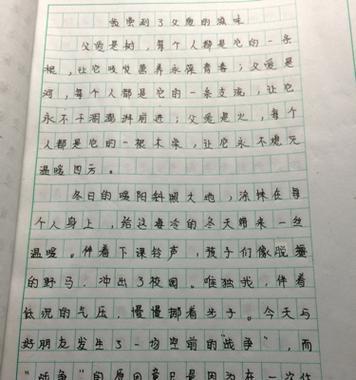 我尝到了父爱的滋味
父爱是树，每个人都是它的一条
根，让它吸收营养永葆青春；父爱是
河，每个人都是它的一条支流，让它
永不干涸澎湃前进；父爱是火，每个
人都是它的一根木柴，让它永不熄灭
温暖四方。
冬日的暖阳斜照大地，涂抹在每
个人身上，给这寒冷的冬天带来一丝
温暖。伴着下课铃声，孩子们像脱缰
的野马，冲出了校园。唯独我，伴着
低沉的气压，慢慢挪着步子。今天与
好朋友发生了一场空前的"战争"，而
"战争"的原因竟只是因为在一次作